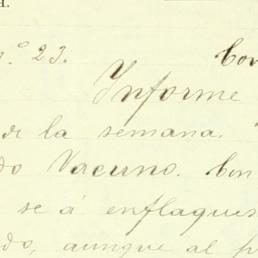 H.
n.º 23. Con
Informe
de la semana.
do Vacuno. Con
se á enflaques
do, aunque al p